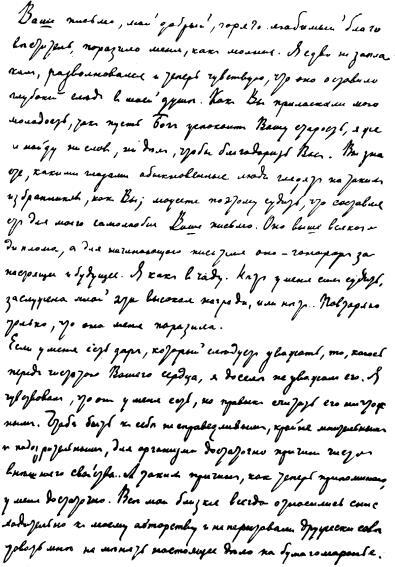 Ваше письмо, мой добрый, горячо любимый благо
веститель, поразило меня, как молния. Я едва не запла
кал, разволновался и теперь чувствую, что оно оставило
глубокий след в моей душе. Как Вы приласкали мою
молодость, так пусть Бог успокоит Вашу старость, я же
не найду ни слов, ни дел, чтобы благодарить Вас. Вы зна
ете, какими глазами обыкновенные люди глядят на таких
избранников, как Вы; можете поэтому судить, что составля
ет для моего самолюбия Ваше письмо. Оно выше всякого
диплома, а для начинающего писателя оно – гонорар за
настоящее и будущее. Я как в чаду. Нет у меня сил судить,
заслужена мной эта высокая награда, или нет.. Повторяю
только, что она меня поразила.
Если у меня есть дар, который следует уважать, то, каюсь
перед чистотою Вашего сердца, я доселе не уважал его. Я
чувствовал, что он у меня есть, но привык считать его ничтож
ным. Чтоб быть к себе несправедливым, крайне мнительным
и подозрительным, для организма достаточно причин чисто
внешнего свойства. А таких причин, как теперь припоминаю,
у меня достаточно. Все мои близкие всегда относились снис
ходительно к моему авторству и не переставали дружески сове
товать мне не менять настоящее дело на бумагомаранье.